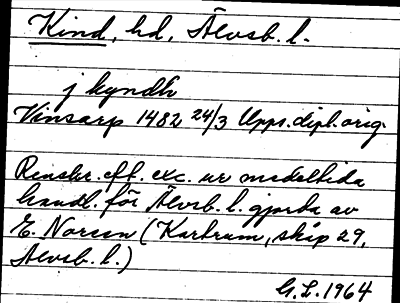 Kind, hd, Älvsb. l.
j kyndh
Vinsarp 1482 24/3 Upps. dipl. orig.
Renskr. eft. exc. ur medeltida
handl. för Älvsb. l. gjorda av
E. Noreen (Kartrum, skåp 29,
Älvsb. l.)
G.L. 1964